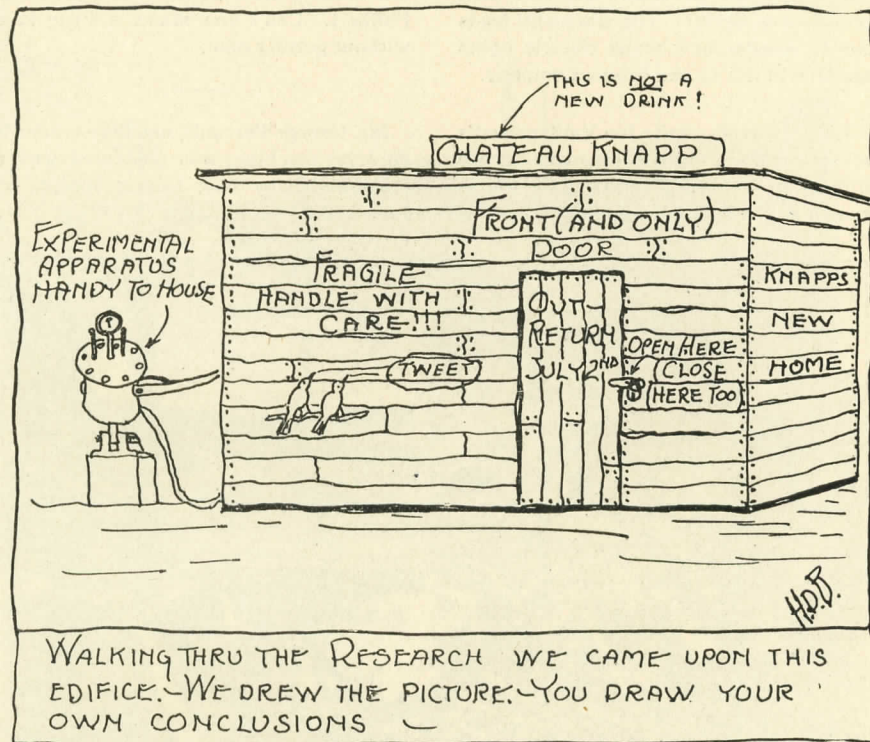 THIS IS NOT A
NEW DRINK!
CHATEAU KNAPP
FRONT (AND ONLY)
DOOR
EXPERIMENTAL
APPARATUS
HANDY TO HOUSE
T
FRAGILE
HANDLE WITH
CARE!!!
TWEET
OUT
RETURN
JULY 2ND
OPEN HERE
CLOSE
HERE TOO
KNAPPS
NEW
HOME
H.D.B.
WALKING THRU THE RESEARCH WE CAME UPON THIS
EDIFICE.-WE DREW THE PICTURE.-YOU DRAW YOUR
OWN CONCLUSIONS —